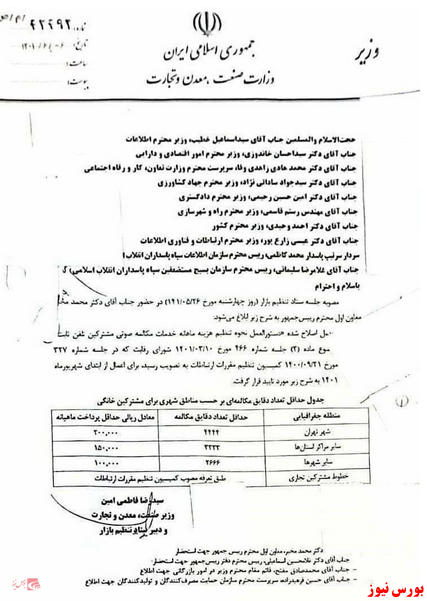 شماره: ۴۲۲۹۲
تاریخ:
ساعت:
پیوست:
جمهوری اسلامی ایران
وزارت صنعت، معدن و تجارت
وزیر
حجت‌الاسلام والمسلمین جناب آقای سیداسماعیل خطیب، وزیر محترم اطلاعات
جناب آقای دکتر سیداحسان خاندوزی، وزیر محترم امور اقتصادی و دارایی
جناب آقای دکتر محمد هادی زاهدی وفا، سرپرست محترم وزارت تعاون، کار و رفاه اجتماعی
جناب آقای دکتر سیدجواد ساداتی نژاد، وزیر محترم جهاد کشاورزی
جناب آقای دکتر امین حسین رحیمی، وزیر محترم دادگستری
جناب آقای مهندس رستم قاسمی، وزیر محترم راه و شهرسازی
جناب آقای دکتر احمد وحیدی، وزیر محترم کشور
جناب آقای دکتر عیسی زارع پور، وزیر محترم ارتباطات و فناوری اطلاعات
سردار سرتیپ پاسدار محمد کاظمی، رییس محترم سازمان اطلاعات سپاه پاسداران انقلاب
جناب آقای غلامرضا سلیمانی، رییس محترم سازمان بسیج مستضعفین سپاه پاسداران انقلاب اسلامی
باسلام و احترام
مصوبه جلسه ستاد تنظیم بازار (روز چهارشنبه مورخ ۱۴۰۱/۰۵/۲۶) در حضور جناب آقای دکتر محمد
معاون اول محترم رییس‌جمهور به شرح زیر ابلاغ می‌شود:
اصلاح شده «دستورالعمل نحوه تنظیم هزینه ماهانه خدمات مکالمه صوتی مشترکین تلفن ثابت
موع ماده (۲) جلسه شماره ۴۶۶ مورخ ۱۴۰۱/۰۳/۱۰ شورای رقابت که در جلسه شماره ۳۲۷
مورخ ۱۴۰۰/۰۹/۲۱ کمیسیون تنظیم مقررات ارتباطات به تصویب رسیده، برای اعمال از ابتدای شهریورماه
۱۴۰۱ به شرح زیر مورد تایید قرار گرفت.
جدول حداقل تعداد دقایق مکالمه‌ای بر حسب مناطق شهری برای مشترکین خانگی
منطقه جغرافیایی حداقل تعداد دقایق مکالمه معادل ریالی حداقل پرداخت ماهیانه
شهر تهران ۴۴۴۴ ۲۰۰,۰۰۰
سایر مراکز استان‌ها ۳۳۳۳ ۱۵۰,۰۰۰
سایر شهرها ۲۶۶۶ ۱۰۰,۰۰۰
خطوط مشترکین تجاری طبق تعرفه مصوب کمیسیون تنظیم مقررات ارتباطات
سیدرضا فاطمی امین
وزیر صنعت، معدن و تجارت
و دبیر ستاد تنظیم بازار
دکتر محمد مخبر، معاون اول محترم رییس جمهور جهت استحضار
جناب آقای دکتر غلامحسین اسماعیلی، رییس محترم دفتر رییس‌جمهور جهت استحضار
جناب آقای محمدصادق مفتح، قائم مقام محترم وزیر در امور بازرگانی جهت اطلاع
جناب آقای حسین فرهیدزاده، سرپرست محترم سازمان حمایت مصرف‌کنندگان و تولیدکنندگان جهت اطلاع
بورس نیوز